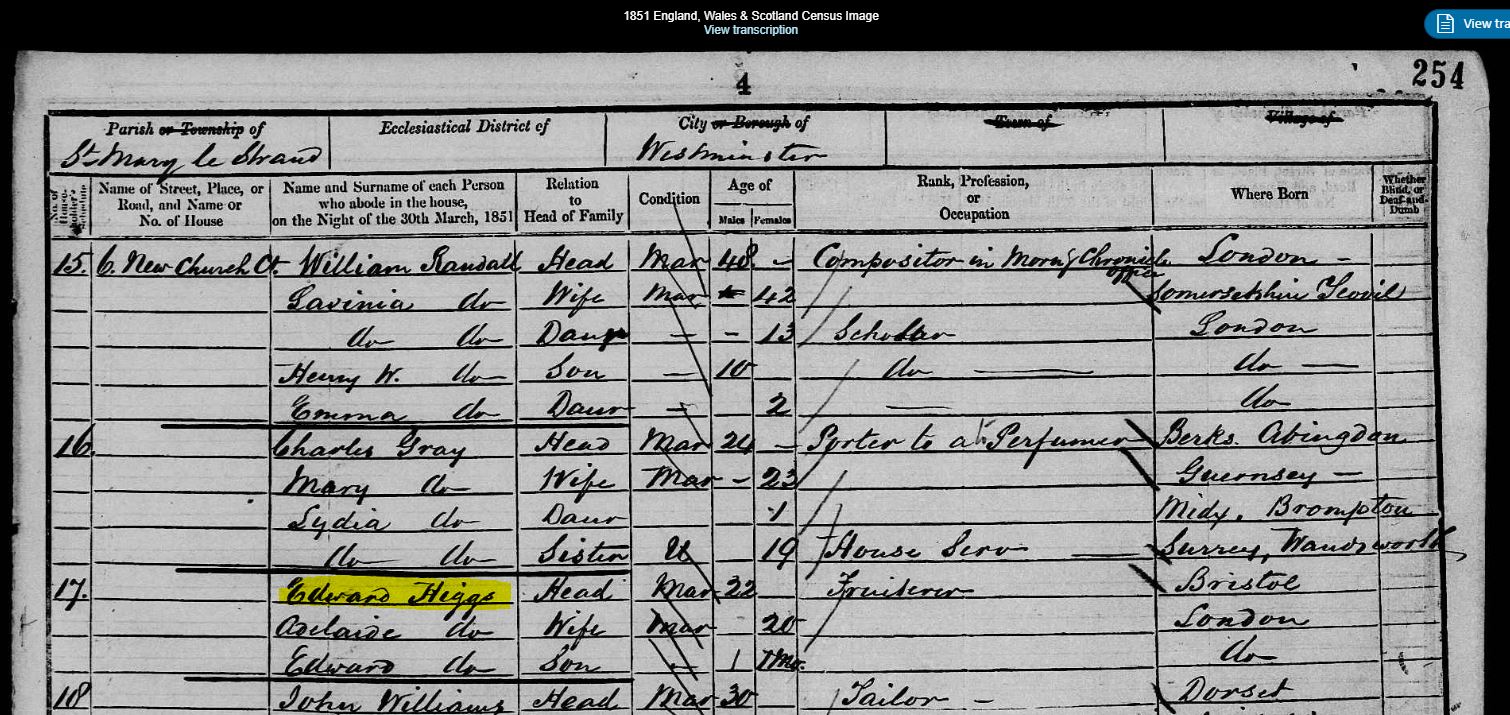 1851 England, Wales & Scotland Census Image
View transcription
View tra
4
254
Parish or Township of
Ecclesiastical District of
City or Borough of
Town of
Village of
St Mary le Strand
Westminster
No. of House-holder's Schedule
Name of Street, Place, or Road, and Name or No. of House
Name and Surname of each Person who abode in the house, on the Night of the 30th March, 1851
Relation to Head of Family
Condition
Age of
Males
Females
Rank, Profession, or Occupation
Where Born
Whether Blind, or Deaf-and-Dumb
15. 6. New Church Ct. William Randall Head Mar 48 - Compositor in Morng Chronicle office London -
Lavinia do Wife Mar 42 Somersetshire Yeovil
do do Daur - - 13 Scholar London
Henry W. do Son - 10 do do
Emma do Daur - 2 do
16. Charles Gray Head Mar 24 - Porter to a Perfumer Berks. Abingdon
Mary do Wife Mar - 23 Guernsey -
Lydia do Daur 1 Midx. Brompton
do do Sister U 19 House Serv Surrey, Wandsworth
17. Edward Higgs Head Mar 22 Fruiterer Bristol
Adelaide do Wife Mar 20 London
Edward do Son - 1 Mo. do
18 John Williams Head Mar 30 Tailor - Dorset